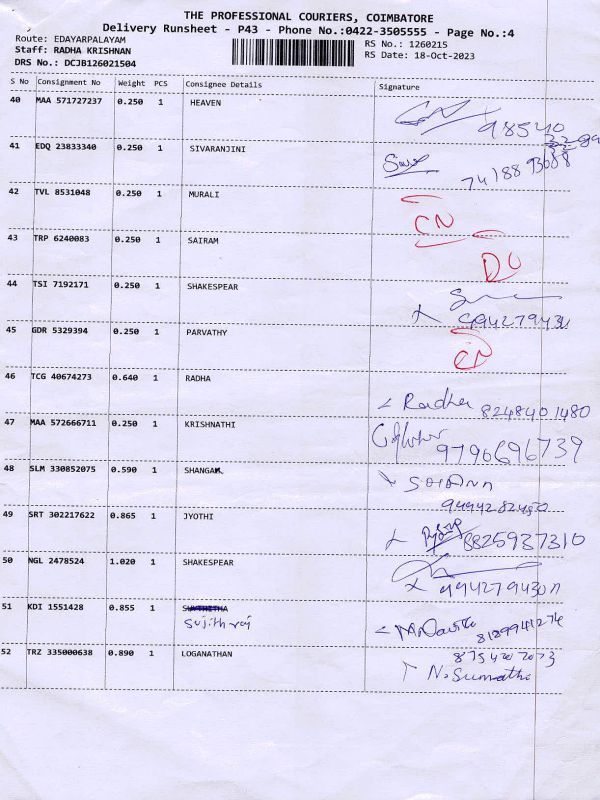 THE PROFESSIONAL COURIERS, COIMBATORE
Delivery Runsheet - P43 - Phone No.:0422-3505555 - Page No.:4
Route: EDAYARPALAYAM
Staff: RADHA KRISHNAN
DRS No.: DCJB126021504
RS No.: 1260215
RS Date: 18-Oct-2023
S No Consignment No Weight PCS Consignee Details Signature
40 MAA 571727237 0.250 1 HEAVEN
98540
41 EDQ 23833340 0.250 1 SIVARANJINI
42 TVL 8531048 0.250 1 MURALI
CN
43 TRP 6240083 0.250 1 SAIRAM
44 TSI 7192171 0.250 1 SHAKESPEAR
45 GDR 5329394 0.250 1 PARVATHY
CN
46 TCG 40674273 0.640 1 RADHA
Radha 8248401480
47 MAA 572666711 0.250 1 KRISHNATHI
9790696739
48 SLM 330852075 0.590 1 SHANGAR
49 SRT 302217622 0.865 1 JYOTHI
8825937310
50 NGL 2478524 1.020 1 SHAKESPEAR
51 KDI 1551428 0.855 1
Sujith raj
8129941274
52 TRZ 335000638 0.890 1 LOGANATHAN
N. Sumathi